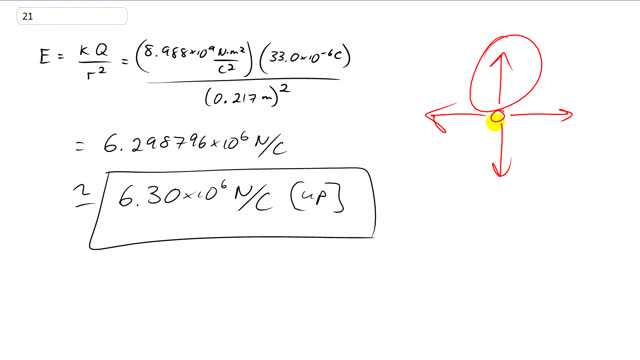 21
E = kQ/r² = (8.988×10⁹ N·m²/C²)(33.0×10⁻⁶C)/(0.217m)²
= 6.298796×10⁶ N/C
≃ 6.30×10⁶ N/C (up)